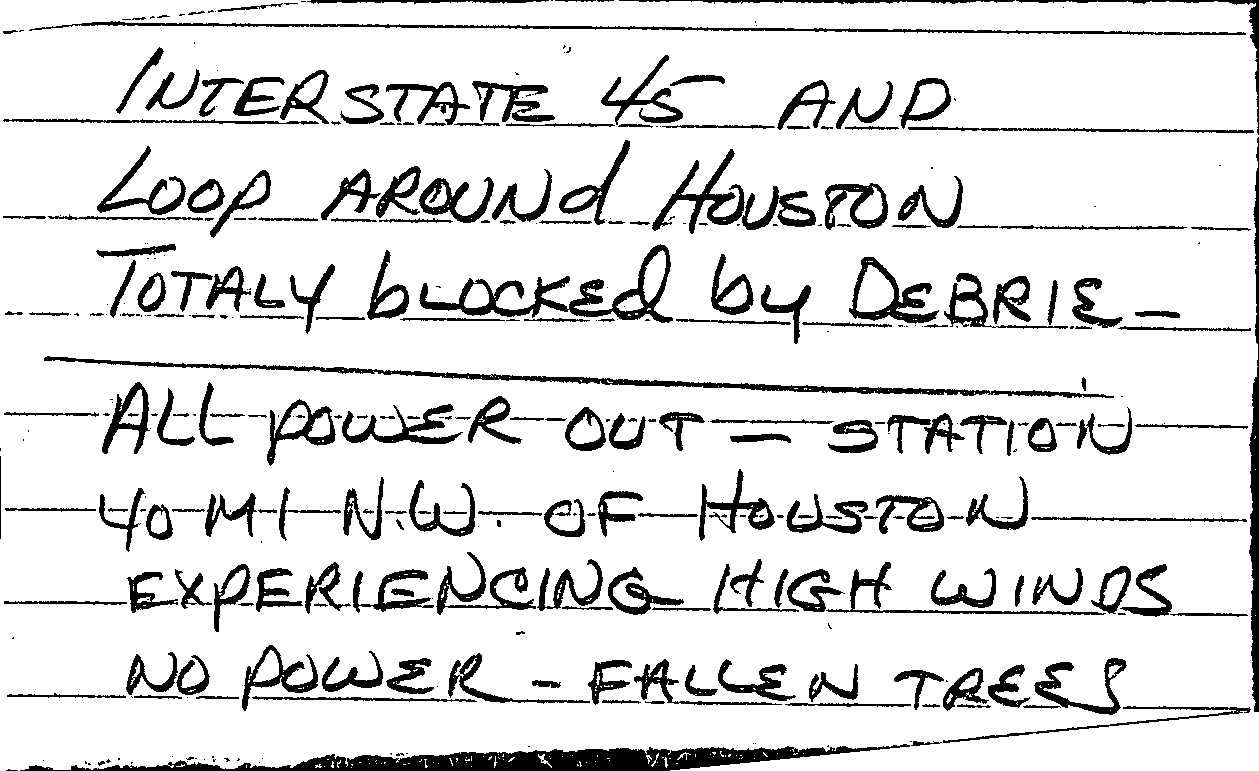 INTERSTATE 45 AND
LOOP AROUND HOUSTON
TOTALY bLOCKEd by DEBRIE -
ALL POWER OUT - STATION
40 MI N.W. OF HOUSTON
EXPERIENCING HIGH WINDS
NO POWER - FALLEN TREES